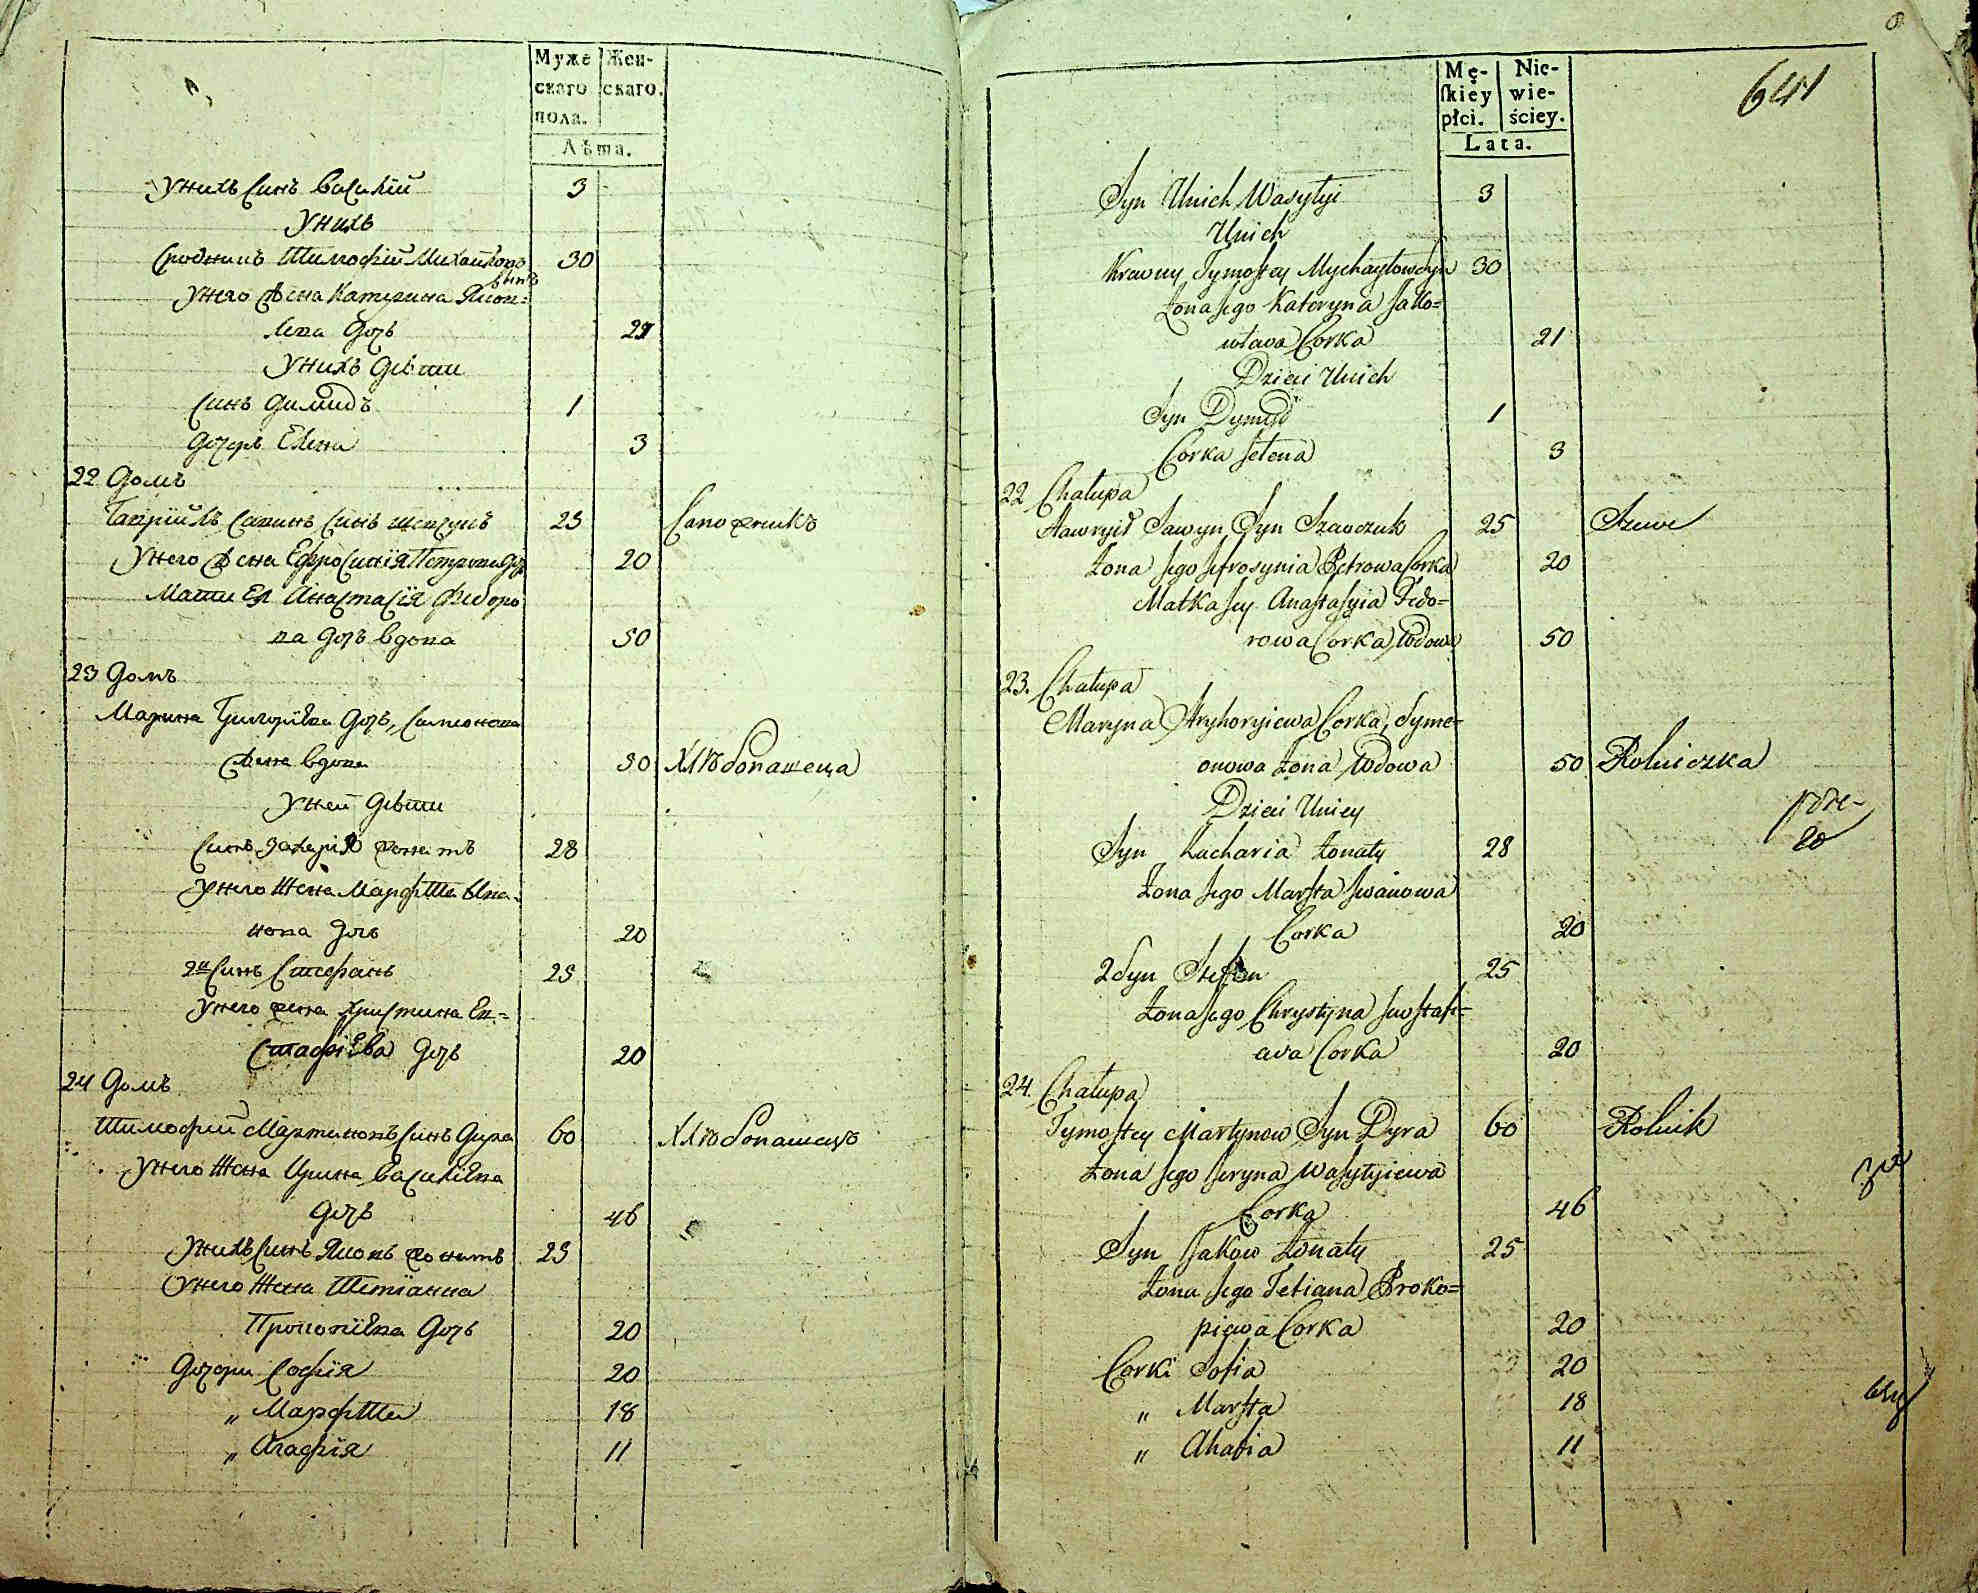 Муже Жен-
скаго скаго.
пола.
Лѣта.
Унихъ Синъ Василій 3
Унихъ
Сродникъ Тимофій Михайловъ 30
Синъ
Унего Жена Катерина Яков-
лева Дочь 21
Унихъ Дѣти
Синъ Димидъ 1
Дочерь Елена 3
22 Домъ
Гаврійлъ Савинъ Синъ Шевчукъ 25 Сапожникъ
Унего Жена Ефросинія Петрова Дочь 20
Мати Ея Анастасія Федоро
ва Дочь вдова 50
23 Домъ
Марина Григоріева Дочь, Симеонова
Жена вдова 50 Хлѣбопашеца
Уней Дѣти
Синъ Захарія Женатъ 28
Унего Жена Марфта Ива-
нова Дочь 20
2й Синъ Стефанъ 25
Унего Жена Христина Ев-
стафіева Дочь 20
24 Домъ
Тимофій Мартиновъ Синъ Дира 60 Хлѣбопашецъ
Унего Жена Ирина Василіева
Дочь 46
Унихъ Синъ Яковъ Женатъ 25
Унего Жена Тетіанна
Прокопіева Дочь 20
Дочери Софія 20
„ Марфта 18
„ Агафія 11
Mę- Nie-
skiey wie-
płci. ściey.
Lata.
641
Syn Unich Wasylyi 3
Unich
Krewny Tymoftey Mychayłow Syn 30
Żona Jego Kateryna Jako-
włava Corka 21
Dzieci Unich
Syn Dymid 1
Corka Jelena 3
22 Chałupa
Hawryił Sawyn Syn Szawczuk 25 Szewc
Żona Jego Jefrosynia Petrowa Corka 20
Matka Jey Anastasyia Fedo-
rowa Corka Wdowa 50
23. Chałupa
Maryna Hryhoryiewa Corka, Syme-
onowa Żona Wdowa 50 Rolniczka
Dzieci Uniey
Syn Zacharia Żonaty 28
Żona Jego Marfta Jwanowa
Corka 20
2 Syn Stefan 25
Żona Jego Chrystyna Jewstafi-
ava Corka 20
24. Chałupa
Tymoftey Martynow Syn Dyra 60 Rolnik
Żona Jego Jeryna Wasylyiewa
Corka 46
Syn Jakow Żonaty 25
Żona Jego Tetiana Proko-
piewa Corka 20
Corki Sofia 20
„ Marfta 18
„ Ahafia 11